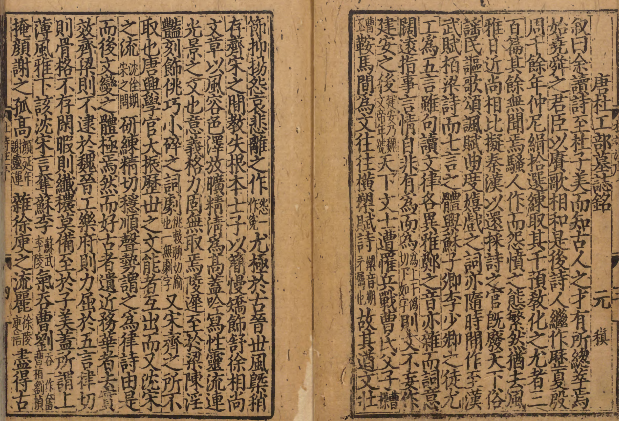 唐杜工部墓誌銘
元稹
敘曰余讀詩至杜子美而知古人之才有所總萃焉
始堯舜之君臣以賡歌相和是後詩人繼作歷夏殷
周千餘年仲尼緝拾選練取其干預教化之尤者三
百篇其餘無聞焉騷人作而怨憤之態繁然猶去風
雅日近尚相比擬秦漢以還採詩之官既廢天下俗
謠民謳歌頌諷賦曲度嬉戲之詞亦隨時間作至漢
武賦柏梁詩而七言之體興蘇子卿李少卿之徒尤
工為五言雖句讀文律各異雅鄭之音亦雜而詞意
闊遠指事言情自非有為而為則文不妄作
建安之後天下文士遭罹兵戰曹氏父子
鞍馬間為文往往橫槊賦詩故其遒文壯
節抑揚哀悲離之作尤極於古晉世風概稍
存齊宋之間教失根本士子以簡慢矯飾舒徐相尚
文章以風容色澤放曠精清為高蓋吟寫性靈流連
光景之文也意義格力固無取焉陵遲至於梁陳淫
豔刻飾佻巧小碎之詞劇又宋齊之所不
取也唐興學官大振歷世之文能者互出而又沈宋
之流沈佺期宋之問研練精切穩順聲勢謂之為律詩由是
而後文變之體極焉然而好古者遺近務華者去實
效齊梁則不逮於魏晉工樂府則力屈於五言律切
則骨格不存閒暇則纖穠莫備至於子美蓋所謂上
薄風雅下該沈宋言奪蘇李蘇武李陵氣吞曹劉曹植劉楨
掩顏謝之孤高顏延年謝靈運雜徐庾之流麗徐陵庾信盡得古